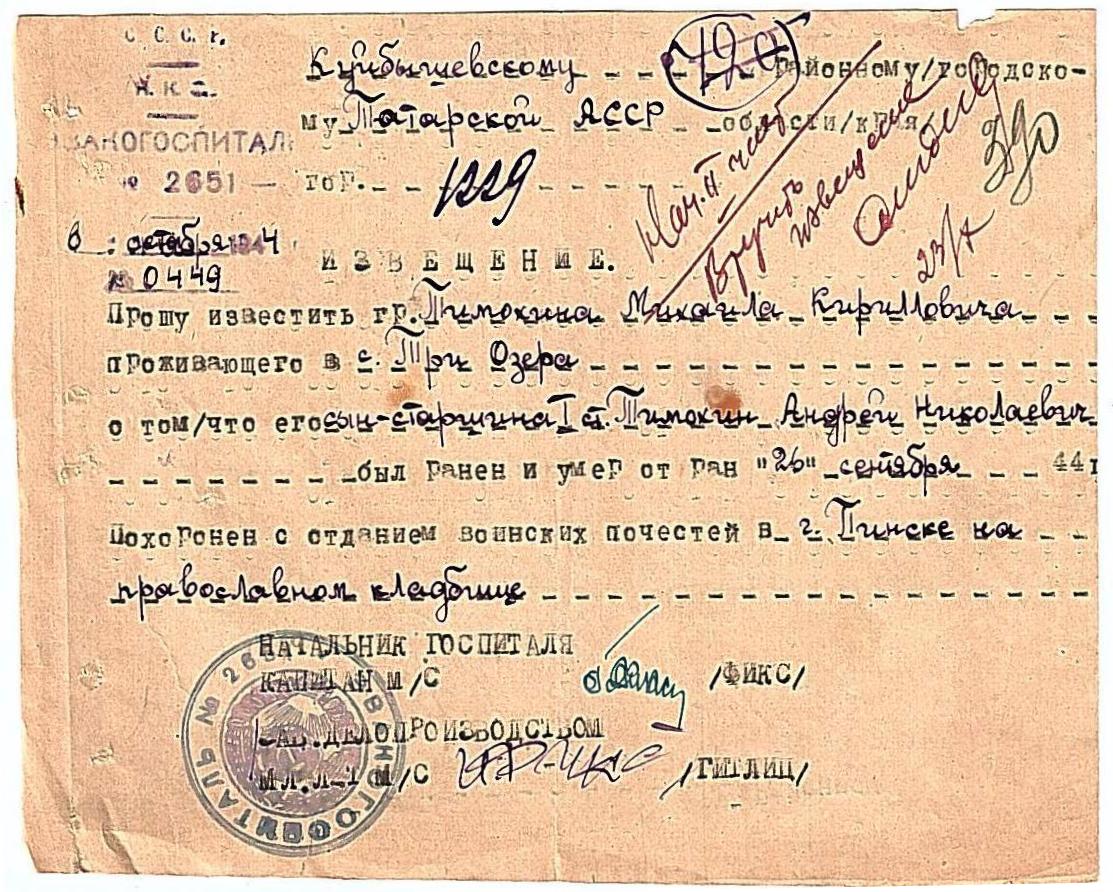 С.С.С.Р.
Н.К.О.
ЭВАКОГОСПИТАЛЬ
№ 2651
6 октября 1944
№ 0449
Куйбышевскому районному/городско-
му Татарской АССР области/края/
тов.
1229
72а
390
Нач. II части
Вручить
извещение
23/X
ИЗВЕЩЕНИЕ.
Прошу известить гр. Тимохина Михаила Кирилловича
проживающего в с. Три Озера
о том/что его сын-старшина I ст. Тимохин Андрей Николаевич
был ранен и умер от ран "26" сентября 44 г
Похоронен с отданием воинских почестей в г. Пинске на
православном кладбище
НАЧАЛЬНИК ГОСПИТАЛЯ
КАПИТАН М/С /ФИКС/
ЗАВ.ДЕЛОПРОИЗВОДСТВОМ
МЛ.Л-Т М/С /ГИТЛИЦ/